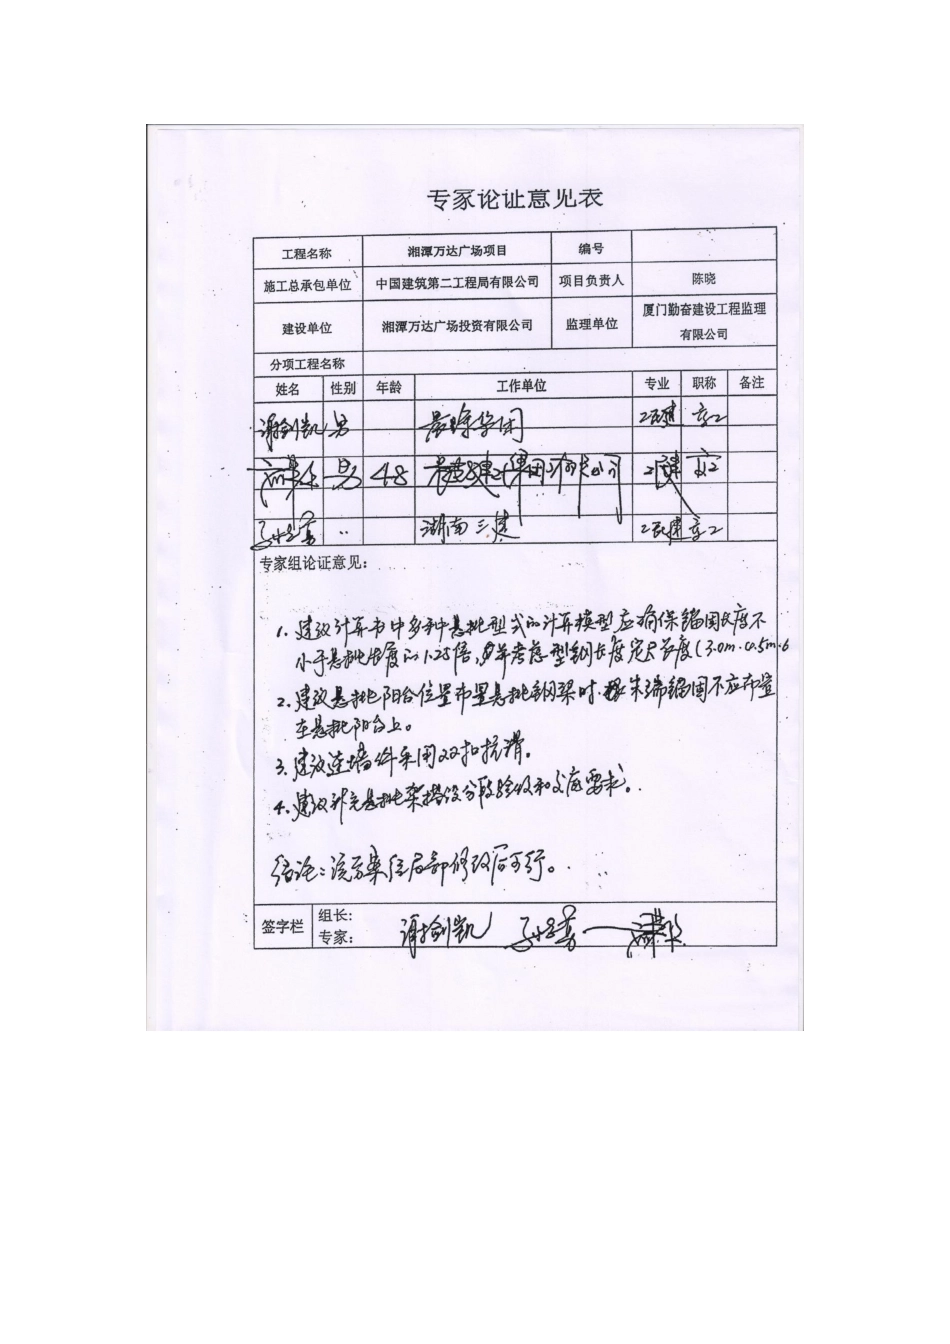 专家论证意见表
工程名称 湘潭万达广场项目 编号
施工总承包单位 中国建筑第二工程局有限公司 项目负责人 陈晓
建设单位 湘潭万达广场投资有限公司 监理单位 厦门勤奋建设工程监理
有限公司
分项工程名称
姓名 性别 年龄 工作单位 专业 职称 备注
谢剑凯 男 高工
男 48 高工
湖南三建 高工
专家组论证意见：
1. 建议计算书中多种悬挑型式的计算模型应确保锚固长度不
小于悬挑长度的1.25倍，并考虑型钢长度定尺长度（3.0m.
2. 建议悬挑阳台位置布置悬挑钢梁时，末端锚固不应布置
在悬挑阳台上。
3. 建议连墙件采用双扣抗滑。
4. 建议补充悬挑架搭设分段验收和交底要求。
结论：该方案经局部修改后可行。
签字栏 组长：
专家： 谢剑凯